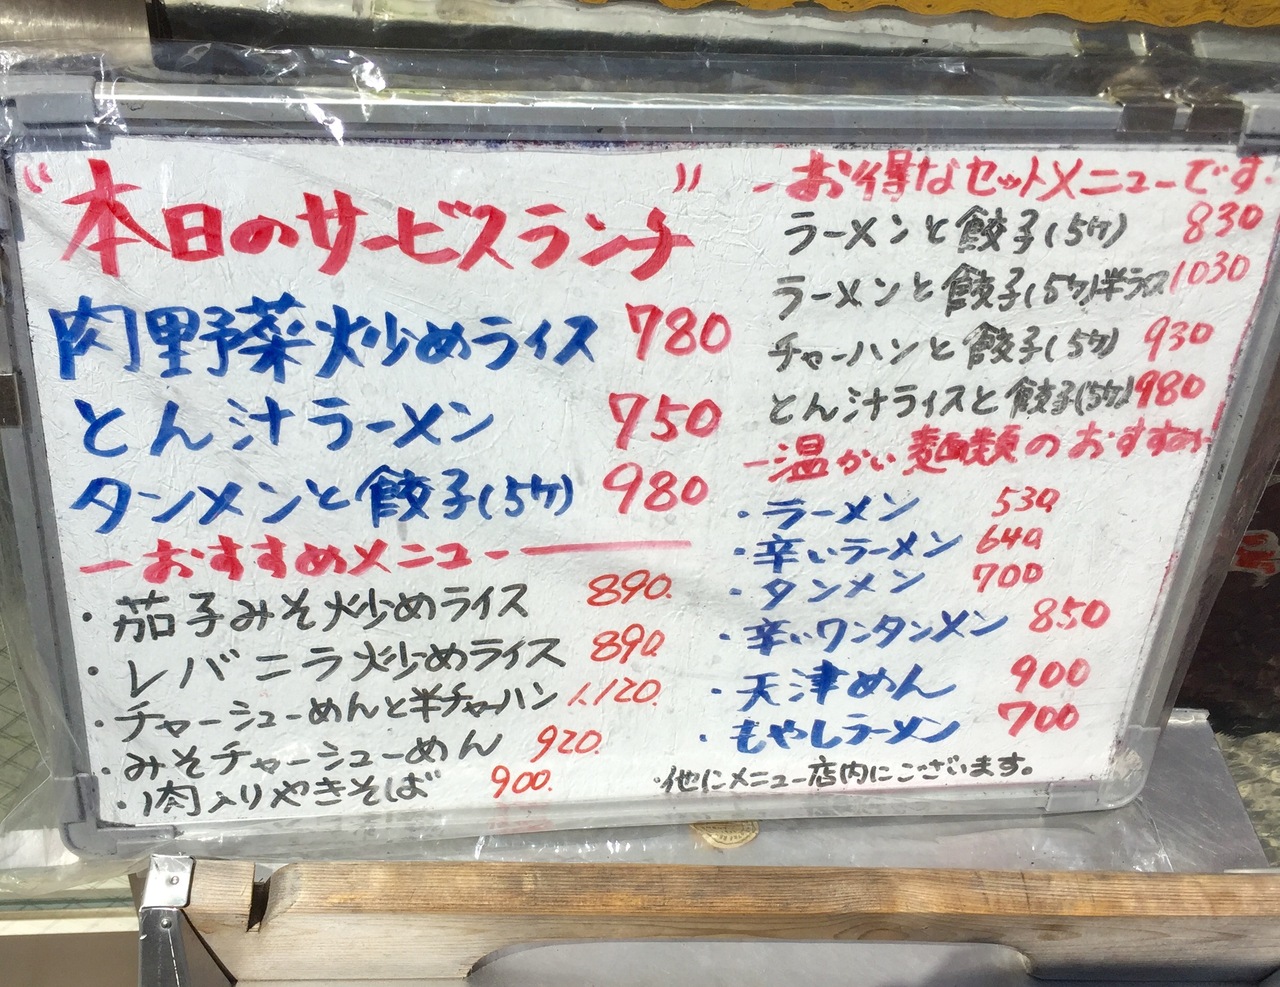 "本日のサービスランチ"
肉野菜炒めライス 780
とん汁ラーメン 750
タンメンと餃子(5ケ) 980
ーおすすめメニューー
・茄子みそ炒めライス 890.
・レバニラ炒めライス 890.
・チャーシューめんと半チャーハン 1.120.
・みそチャーシューめん 920.
・肉入りやきそば 900.
ーお得なセットメニューです!
ラーメンと餃子(5ケ) 830
ラーメンと餃子(5ケ)半ライス 1030
チャーハンと餃子(5ケ) 930
とん汁ライスと餃子(5ケ) 980
ー温かい麺類のおすすめー
・ラーメン 530
・辛いラーメン 640
・タンメン 700
・辛いワンタンメン 850
・天津めん 900
・もやしラーメン 700
・他にメニュー店内にございます。